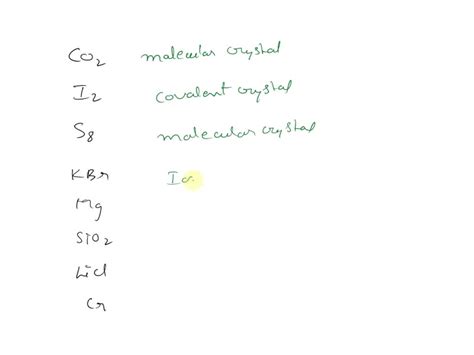 CO2 molecular crystal
I2 covalent crystal
S8 molecular crystal
KBr Io
Mg
SiO2
LiCl
Cr